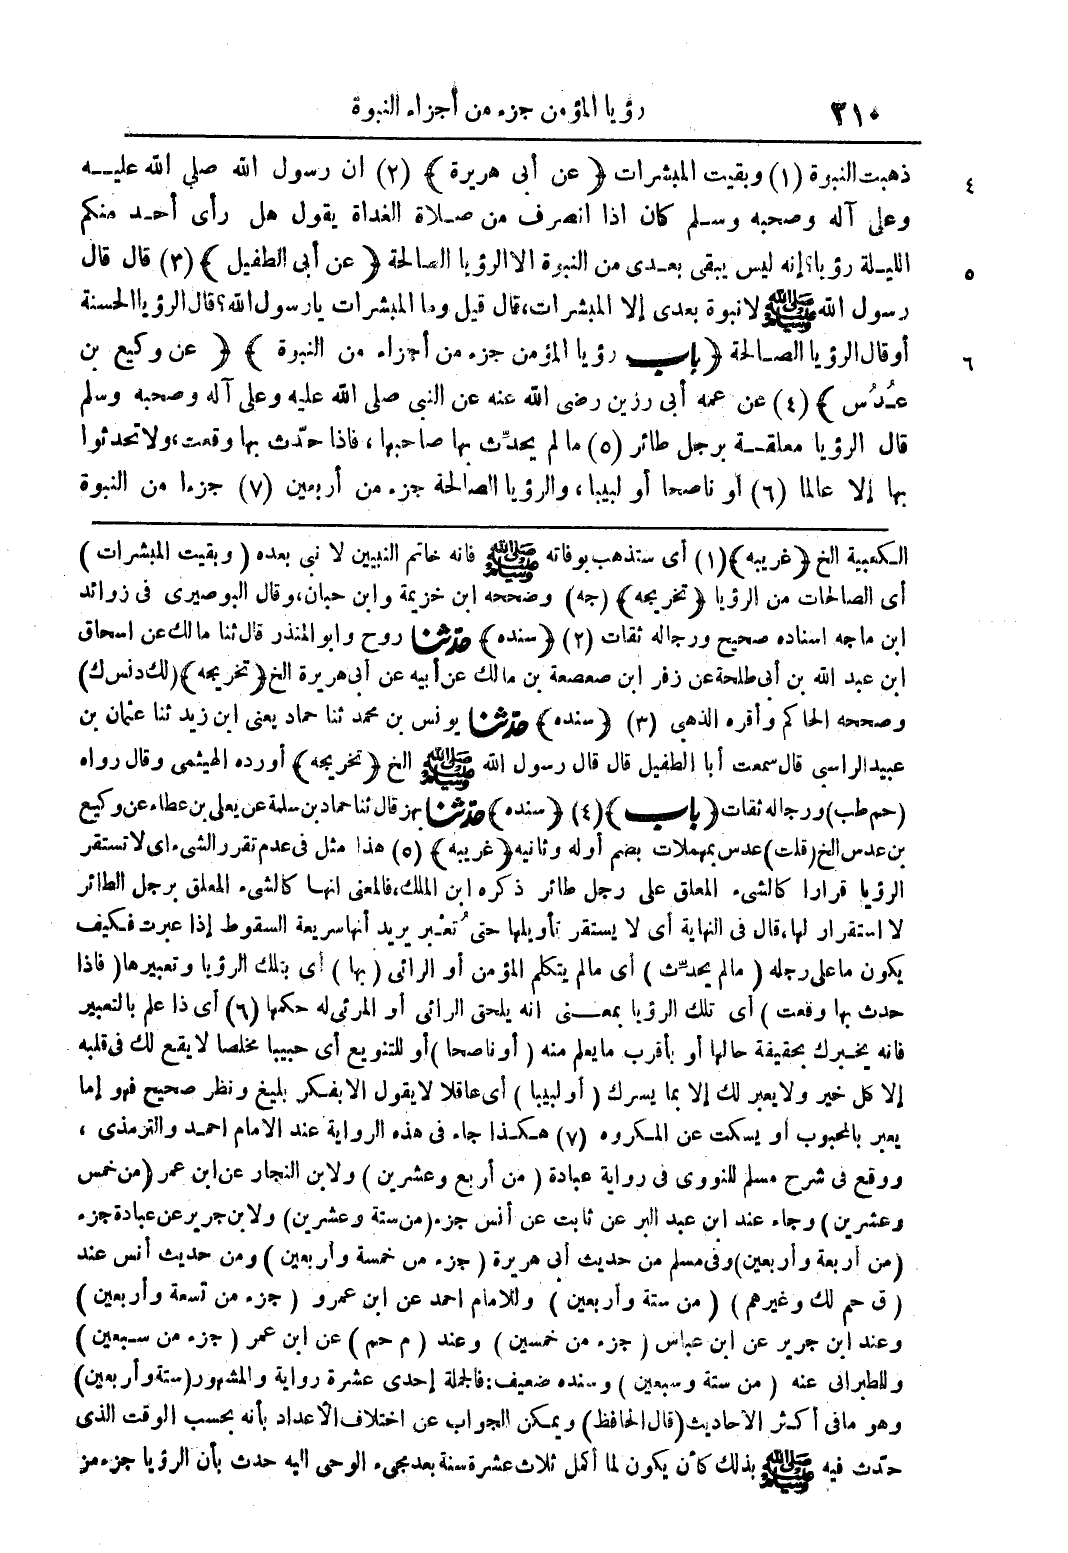 ٢١٠ رؤيا المؤمن جزء من أجزاء النبوة
ذهبت النبوة (١) وبقيت المبشرات ﴿ عن أبى هريرة ﴾ (٢) ان رسول الله صلي الله عليه ٤
وعلى آله وصحبه وسلم كان اذا انصرف من صلاة الغداة يقول هل رأى أحد منكم
الليلة رؤيا؟إنه ليس يبقى بعدى من النبوة الا الرؤيا الصالحة ﴿ عن أبى الطفيل ﴾ (٣) قال قال ٥
رسول الله ﷺ لا نبوة بعدى إلا المبشرات،قال قيل وما المبشرات يارسول الله؟قال الرؤيا الحسنة
أو قال الرؤيا الصالحة ﴿ باب رؤيا المؤمن جزء من أجزاء من النبوة ﴾ ﴿ عن وكيع بن ٦
عُدُس ﴾ (٤) عن عمه أبى رزين رضى الله عنه عن النبى صلى الله عليه وعلى آله وصحبه وسلم
قال الرؤيا معلقة برجل طائر (٥) ما لم يحدّث بها صاحبها ، فاذا حدّث بها وقعت،ولا تحدثوا
بها إلا عالما (٦) أو ناصحا أو لبيبا ، والرؤيا الصالحة جزء من أربعين (٧) جزءا من النبوة
الكعبية الخ ﴿ غريبه ﴾ (١) أى ستذهب بوفاته ﷺ فانه خاتم النبيين لا نبى بعده ( وبقيت المبشرات )
أى الصالحات من الرؤيا ﴿ تخريجه ﴾ (جه) وصححه ابن خزيمة وابن حبان،وقال البوصيرى فى زوائد
ابن ماجه اسناده صحيح ورجاله ثقات (٢) ﴿ سنده ﴾ حدّثنا روح وابو المنذر قال ثنا مالك عن اسحاق
ابن عبد الله بن أبى طلحة عن زفر ابن صعصعة بن مالك عن أبيه عن أبى هريرة الخ ﴿ تخريجه ﴾ (لك د نس ك)
وصححه الحاكم وأقره الذهبى (٣) ﴿ سنده ﴾ حدّثنا يونس بن محمد ثنا حماد يعنى ابن زيد ثنا عثمان بن
عبيد الراسبى قال سمعت أبا الطفيل قال قال رسول الله ﷺ الخ ﴿ تخريجه ﴾ أورده الهيثمى وقال رواه
(حم طب) ورجاله ثقات ﴿ باب ﴾ (٤) ﴿ سنده ﴾ حدّثنا بهز قال ثنا حماد بن سلمة عن يعلى بن عطاء عن وكيع
بن عدس الخ (قلت) عدس بمهملات بضم أوله وثانيه ﴿ غريبه ﴾ (٥) هذا مثل فى عدم تقرر الشىء اى لا تستقر
الرؤيا قرارا كالشىء المعلق على رجل طائر ذكره ابن الملك،فالمعنى انها كالشىء المعلق برجل الطائر
لا استقرار لها،قال فى النهاية أى لا يستقر تأويلها حتى تُعبر يريد أنها سريعة السقوط إذا عبرت فكيف
يكون ما على رجله ( مالم يحدّث ) أى مالم يتكلم المؤمن أو الرائى ( بها ) أى بتلك الرؤيا وتعبيرها ( فاذا
حدث بها وقعت ) أى تلك الرؤيا بمعنى انه يلحق الرائى أو المرئى له حكمها (٦) أى ذا علم بالتعبير
فانه يخبرك بحقيقة حالها أو بأقرب ما يعلم منه ( أو ناصحا ) أو للتنويع أى حبيبا مخلصا لا يقع لك فى قلبه
إلا كل خير ولا يعبر لك إلا بما يسرك ( أو لبيبا ) أى عاقلا لا يقول الا بفكر بليغ ونظر صحيح فهو إما
يعبر بالمحبوب أو يسكت عن المكروه (٧) هكذا جاء فى هذه الرواية عند الامام احمد والترمذى ،
ووقع فى شرح مسلم للنووى فى رواية عبادة ( من أربع وعشرين ) ولابن النجار عن ابن عمر (من خمس
وعشرين ) وجاء عند ابن عبد البر عن ثابت عن أنس جزء (من ستة وعشرين) ولابن جرير عن عبادة جزء
(من أربعة وأربعين) وفى مسلم من حديث أبى هريرة ( جزء من خمسة وأربعين ) ومن حديث أنس عند
( ق حم لك وغيرهم ) ( من ستة وأربعين ) وللامام احمد عن ابن عمرو ( جزء من تسعة وأربعين )
وعند ابن جرير عن ابن عباس ( جزء من خمسين ) وعند ( م حم ) عن ابن عمر ( جزء من سبعين )
وللطبرانى عنه ( من ستة وسبعين ) وسنده ضعيف:فالجملة إحدى عشرة رواية والمشهور (ستة وأربعين)
وهو مافى أكثر الأحاديث (قال الحافظ) ويمكن الجواب عن اختلاف الأعداد بأنه بحسب الوقت الذى
حدّث فيه ﷺ بذلك كأن يكون لما أكمل ثلاث عشرة سنة بعد مجىء الوحى اليه حدث بأن الرؤيا جزء من